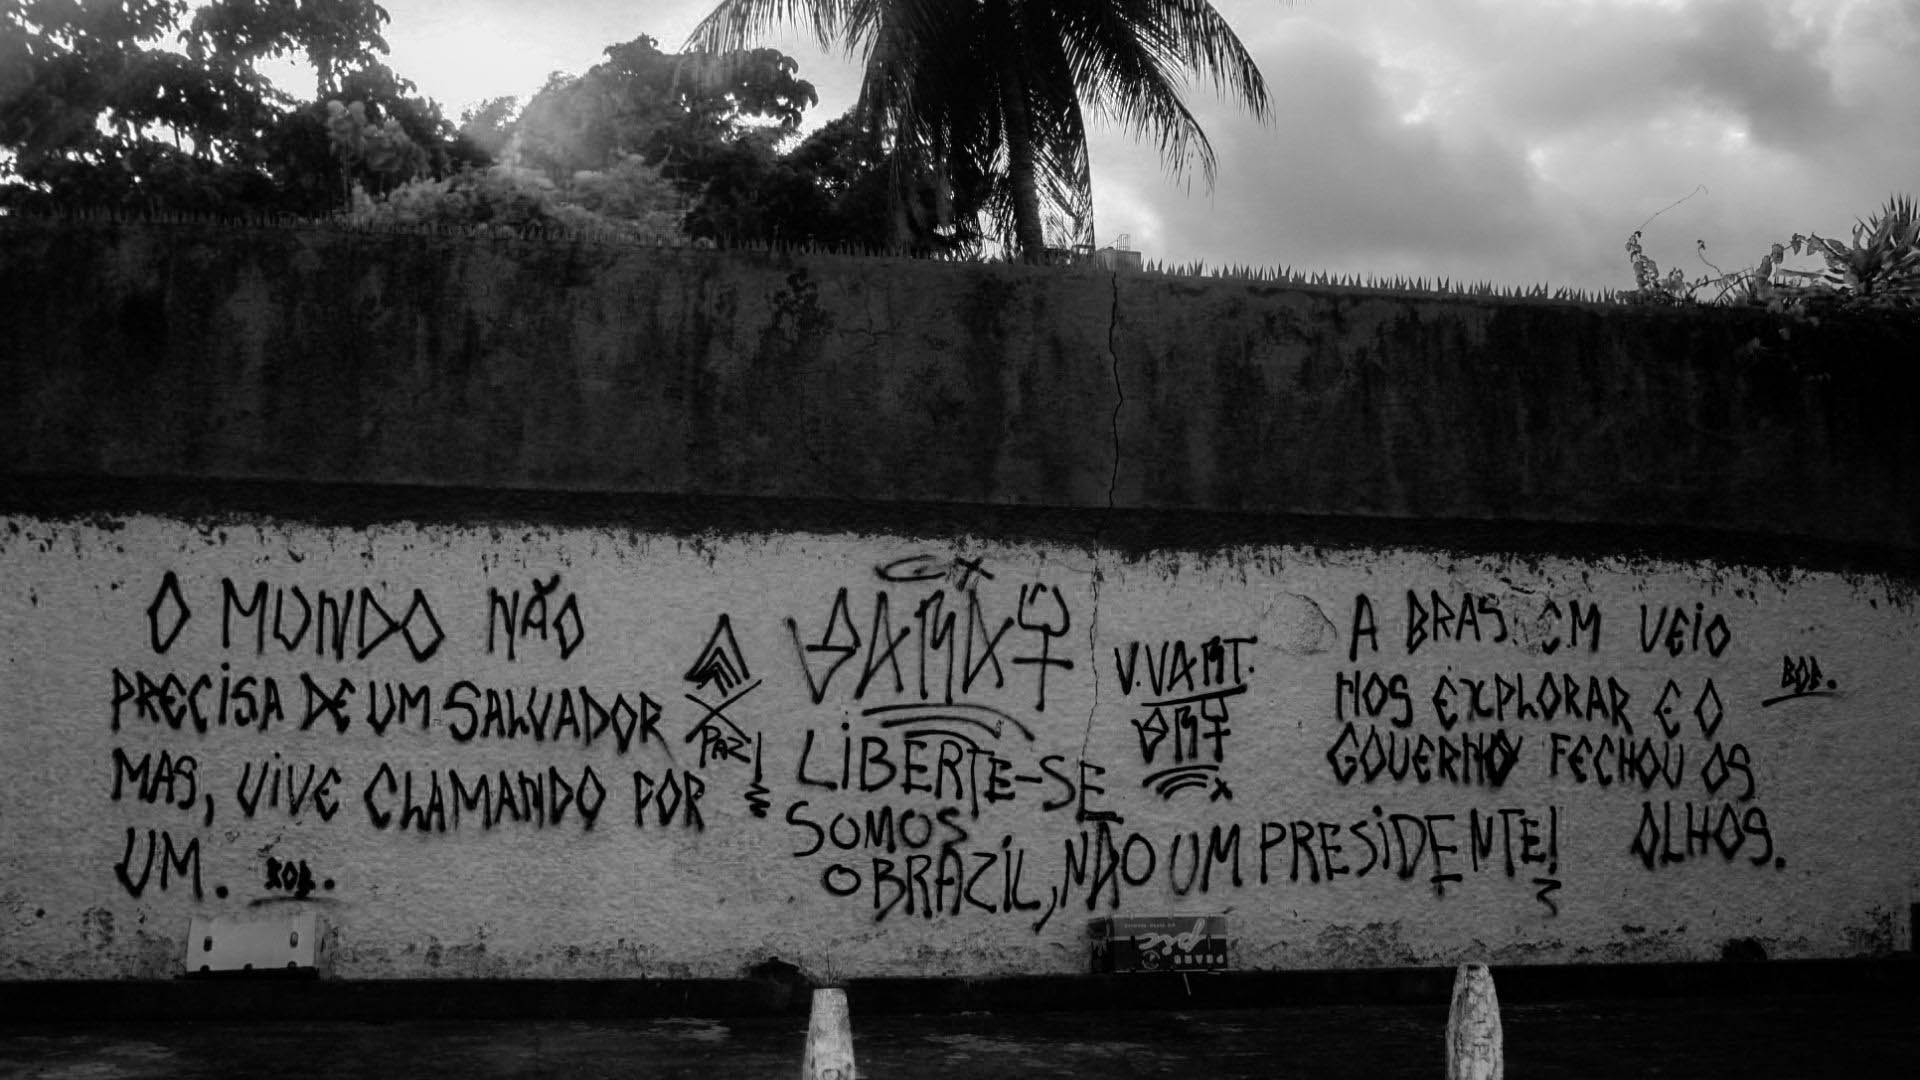 O MUNDO NÃO
PRECISA DE UM SALVADOR
MAS, VIVE CLAMANDO POR
UM.
PAZ!
LIBERTE-SE
SOMOS
O BRAZIL, NÃO UM PRESIDENTE!
V.VANT.
A BRAS EM VEIO
NOS EXPLORAR E O
GOVERNO FECHOU OS
OLHOS.